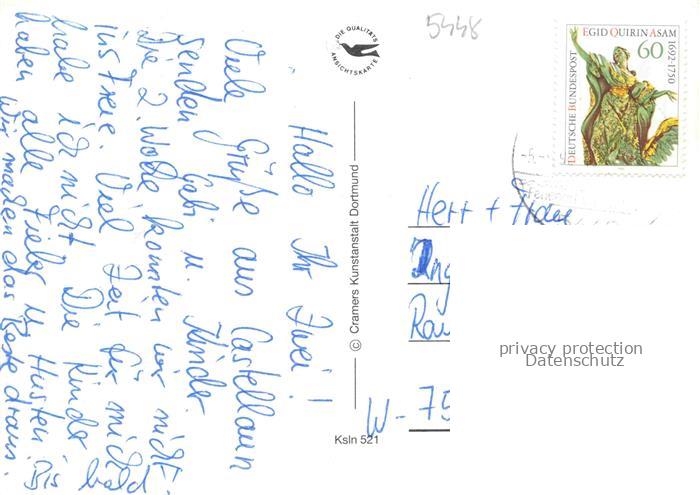 Hallo Ihr Zwei!
Viele Grüße aus Castellaun
senden Gabi u. Kinder.
Die 2. Woche konnten wir nicht
ins Freie. Viel Zeit für mich
habe ich nicht. Die Kinder
haben alle Fieber u. Husten. Bis bald
Wir machen das Beste draus.
DIE QUALITÄTS
ANSICHTSKARTE
© Cramers Kunstanstalt Dortmund
Ksln 521
5448
EGID QUIRIN ASAM
1692-1750
60
DEUTSCHE BUNDESPOST
Herr + Frau
W- 75
privacy protection
Datenschutz